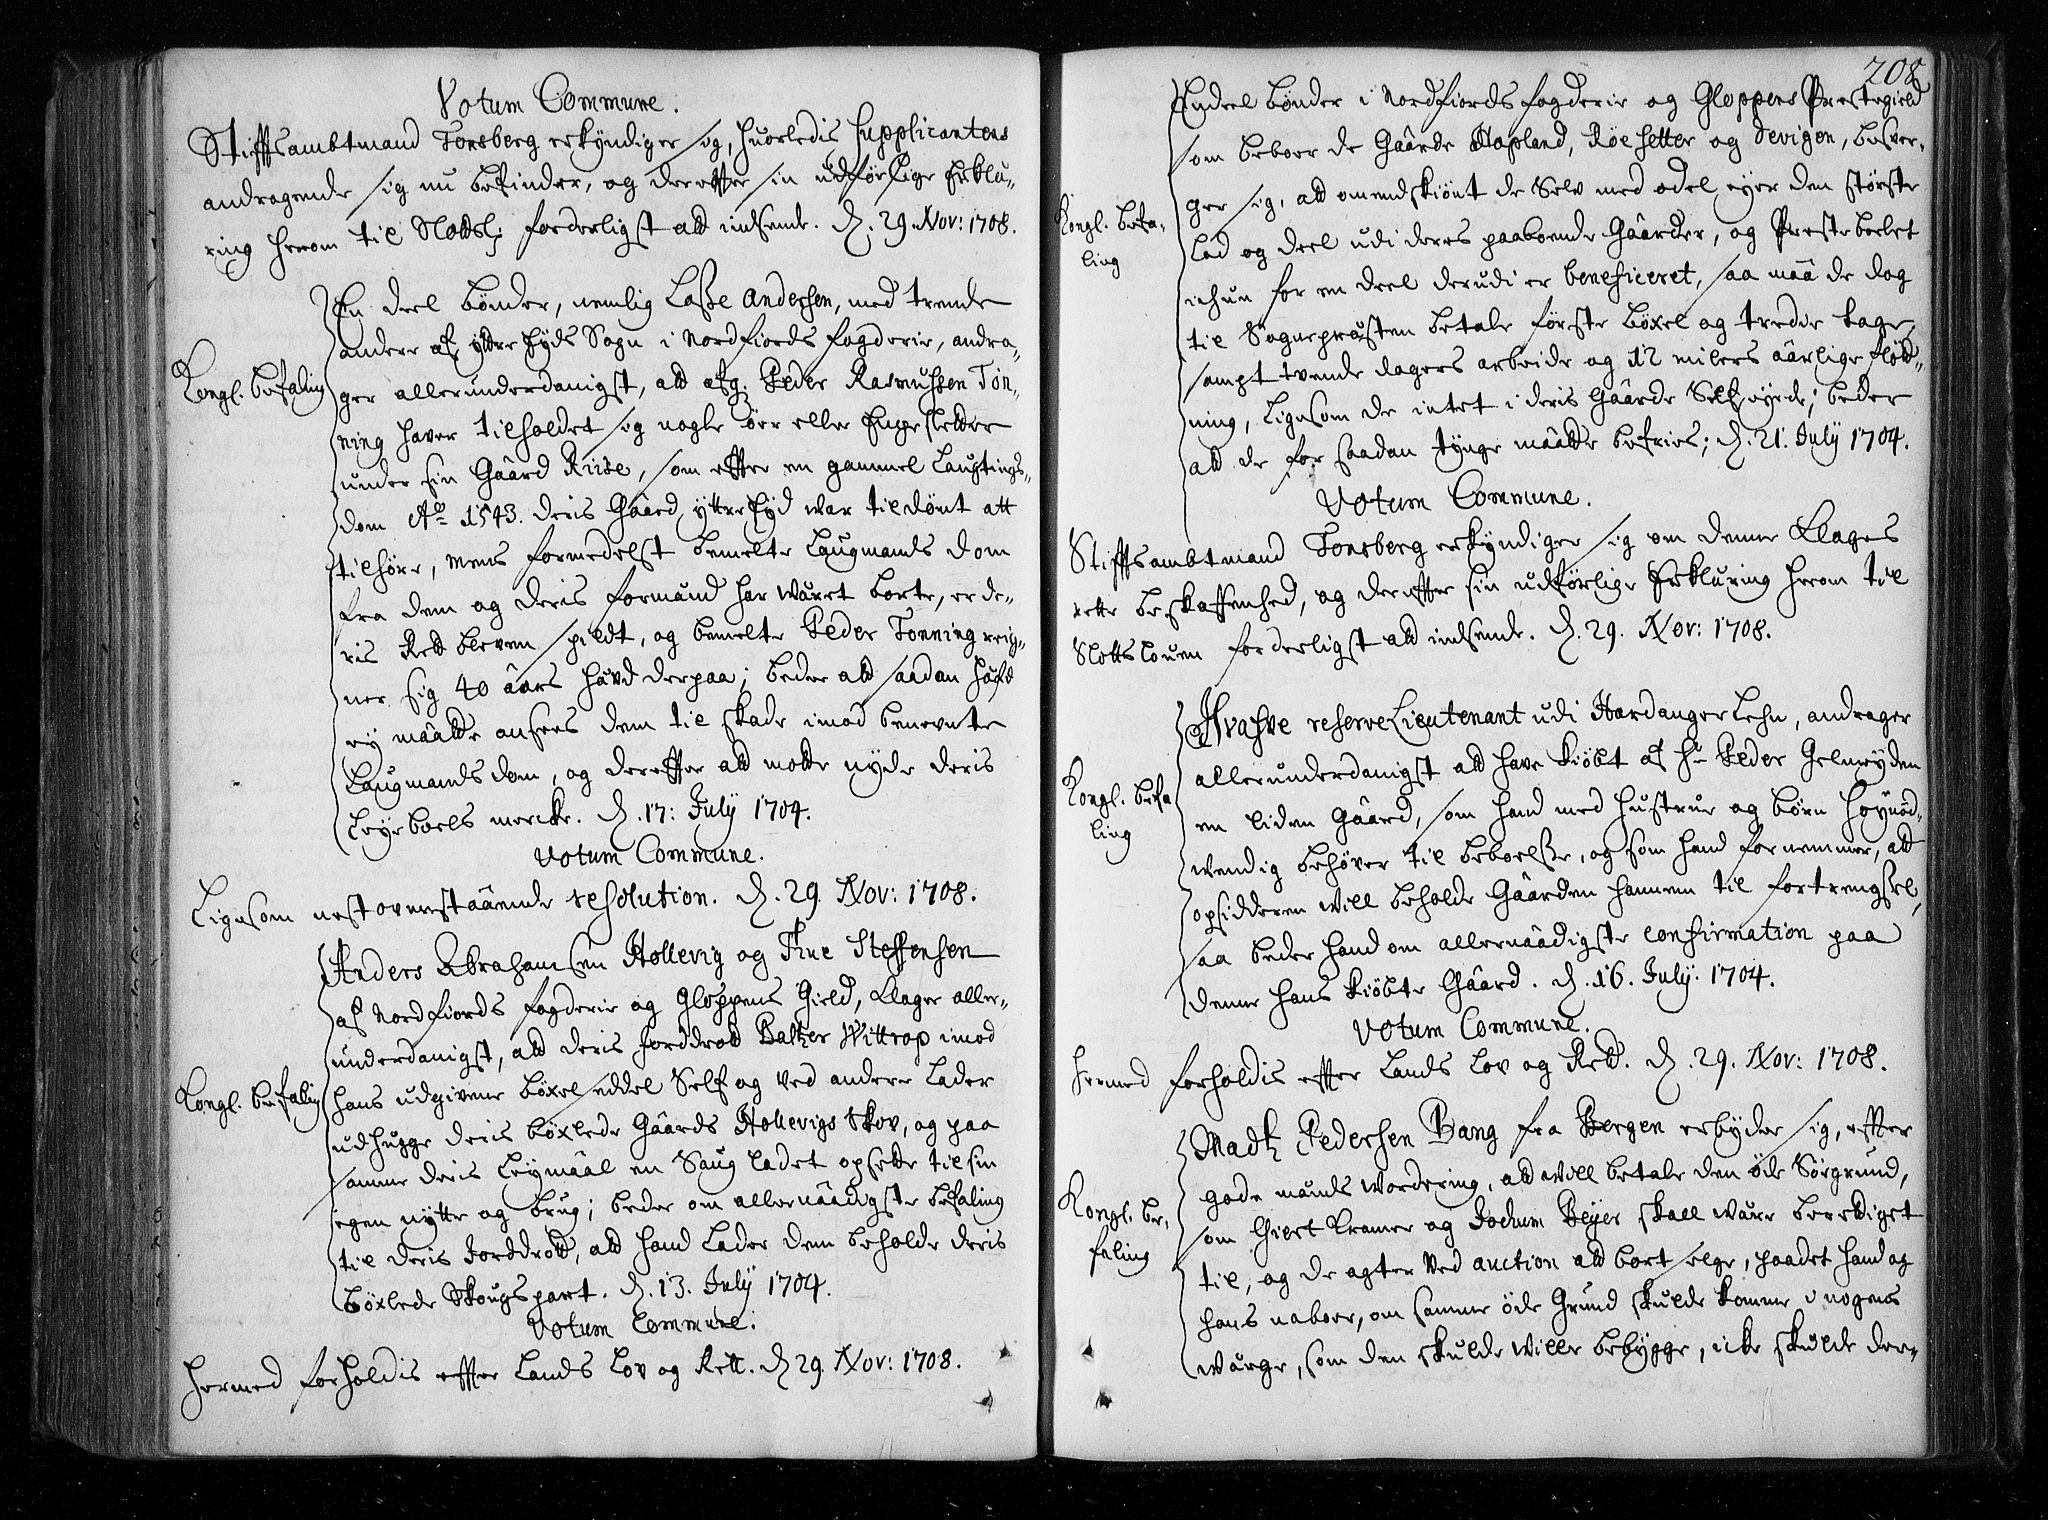 Votum Commune.
Stiffsambtmand Tonsberg erkyndiger sig, huorledis Supplicantens
andragende sig nu befinder, og dereffter sin udførlige Erklæ-
ring herom til Slottsl: forderligst att indsende. D. 29. Nov: 1708.
Kongl. befaling
En deel bønder, nemlig Lasse Andersen, med trende
andere af ytre Eyds Sogn i Nordfiords fogderie, andra-
ger allerunderdanigst, att afg. Peder Rasmussen Ton-
ning haver tilholdet sig nogle øer eller Enge sletter
under sin Gaard Riise, som effter en gammel Laugtings-
dom Ao 1543. deris Gaard yttre Eyd war tildømt att
tilhøre, mens formedelst bemelte Laugmands dom
fra dem og deris formænd har wæret borte, er de-
ris Rett bleven spildt, og bemelte Peder Tonning reig-
ner sig 40 aars hævd derpaa; beder att saadan hæfd
ey maatte ansees dem til skade imod benevnte
Laugmands dom, og dereffter att motte nyde deris
Leyeboels mercke. D. 17: July 1704.
Votum Commune.
Ligesom nestovenstaaende resolution. D. 29. Nov: 1708.
Kongl. befaling
Anders Abrahamsen Hollevig og Thue Steffensen
af Nordfiords fogderie og Gloppens Gield, klager aller-
underdanigst, att deris Jorddrott Baltzer Wittrop imod
hans udgivene bøxelseddel Self og ved andere lader
udhugge deris bøxlede Gaards Hollevigs Skov, og paa
samme deris Leymaal en Saug ladet opsette til sin
egen nytte og brug; beder om allernaadigste befaling
til deris Jorddrott, att hand lader dem beholde deris
bøxlede Skougspart. D. 13. July 1704.
Votum Commune.
Hermed forholdis effter Lands Lov og Rett. D 29. Nov: 1708.
208
Kongl. befa-
ling
Endeel bønder i Nordfiords fogderie og Gloppens Prestegield
som beboer de Gaarde Hopland, Røesetter og Devigen, besver-
ger sig, att omendskiønt de Selv med odel eyer den største
Lod og deel udi deres paaboende Gaarder, og Prestebolet
ickun for en deel derudi er beneficeret, saa maa de dog
til Sognepresten betale første bøxel og tredie tage,
sampt tvende dagers arbeide og 12 milers aarlige fløt-
ning, ligesom de intet i deris Gaarde Self eyede; beder
att de for saadan tynge maatte befries; D. 21. July 1704.
Votum Commune.
Stiffsambtmand Tonsberg erkyndiger sig om denne Klages
rette beskaffenhed, og dereffter sin udførlige Erklæring herom til
Slottslouen forderligst att indsende. D. 29. Nov: 1708.
Kongl. befa
ling
reserve Lieutenant udi Hardanger Lehn, andrager
allerunderdanigst att have kiøbt af Hr Peder Gelmeyden
en liden Gaard, som hand med hustrue og børn høynød-
wendig behøver til beboelse, og som hand fornemmer, att
opsidderen will beholde Gaarden hannem til fortrengsel,
saa beder hand om allernaadigste confirmation paa
denne hans kiøbte Gaard. D. 16. July. 1704.
Votum Commune.
Hermed forholdis effter Lands Lov og Rett. D. 29. Nov: 1708.
Kongl. be-
faling
Madtz Pedersen Bang fra Bergen erbyder sig, effter
gode mænds wordering, att will betale den øde Søegrund,
som Giert Kramer og Jochum Beyer skall være berettiget
til, og de agter ved auction att bortselge, paadet hand og
hans naboer, om samme øde Grund skulde komme i nogens
wærge, som den skulde wille bebygge, icke skulde der-